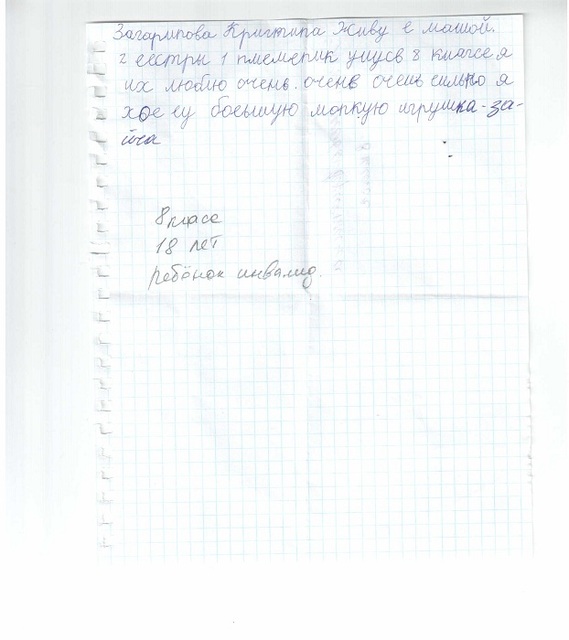 Загарипова Кристина Живу с машой.
2 сестры 1 племепик учусв 8 класся я
их люблю очень. оченв очень сильно я
хое су боеьшую моркую игрушка-за-
йча
8 класс
18 лет
ребёнок инвалид.